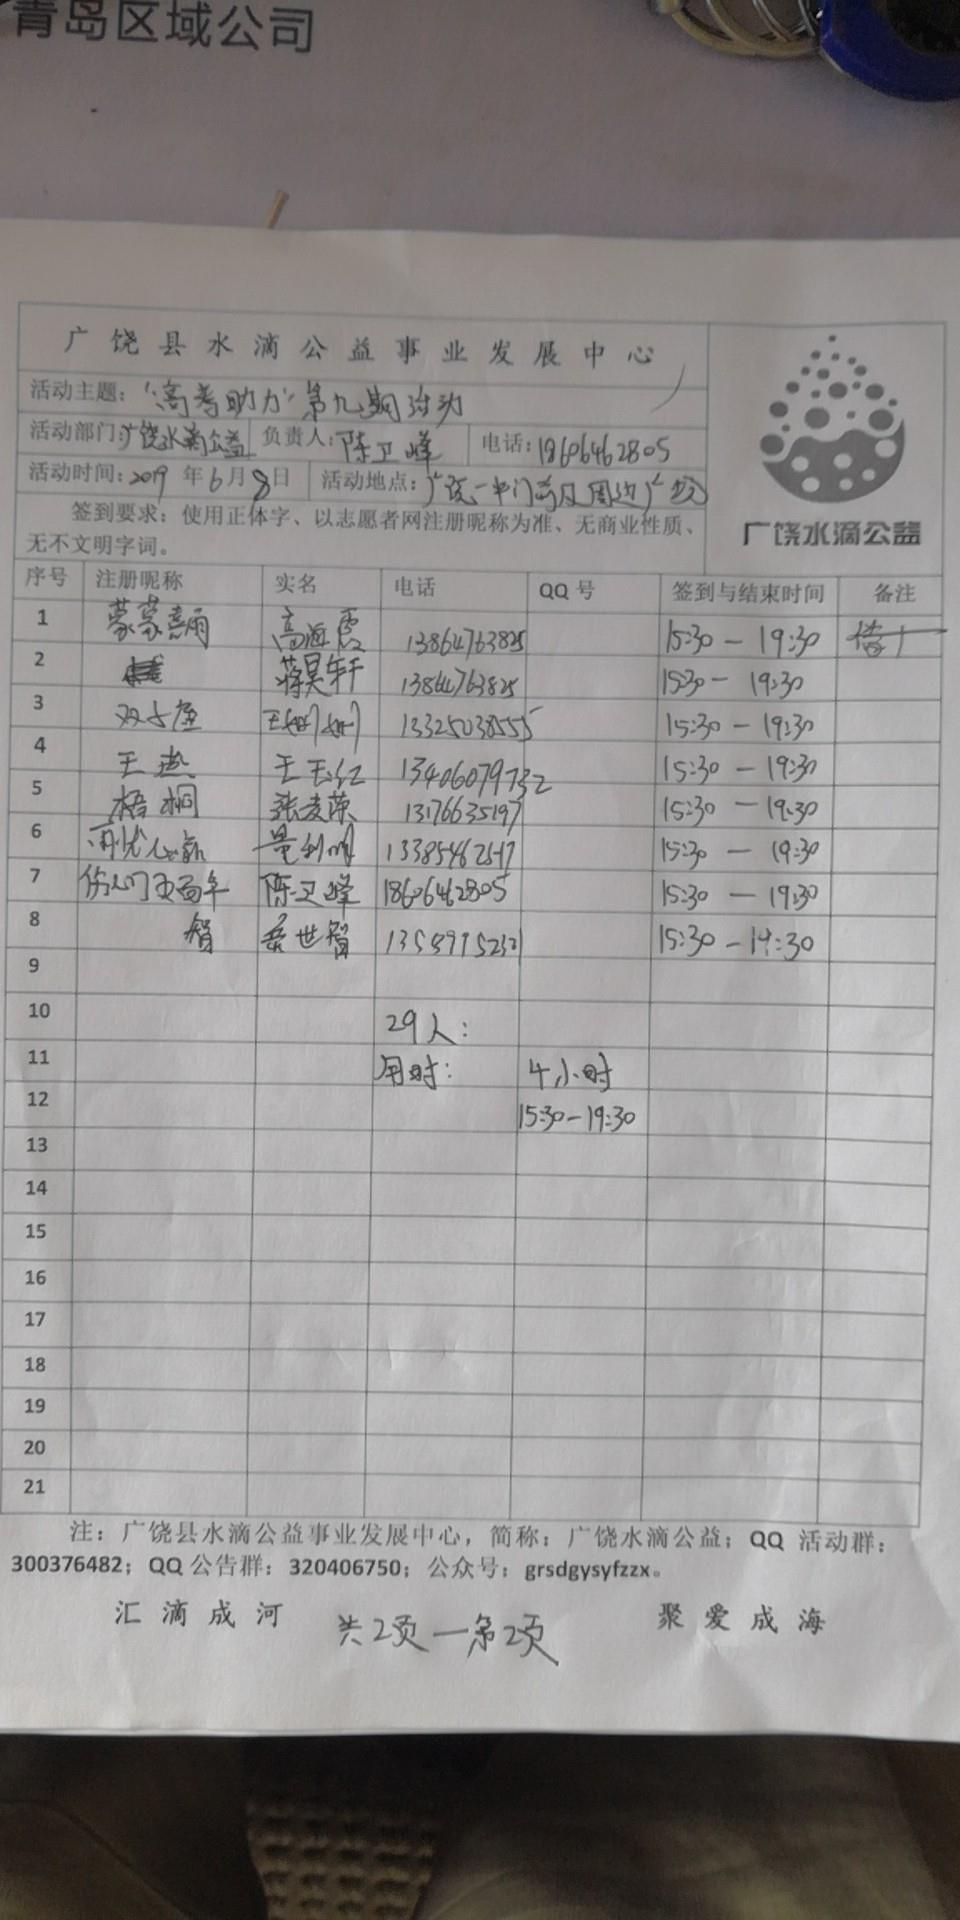 青岛区域公司
广饶县水滴公益事业发展中心
活动主题：“高考助力”第九期活动
活动部门：广饶水滴公益 负责人：陈卫峰 电话：18606462805
活动时间：2019年6月8日 活动地点：广饶一中门前及周边广场
签到要求：使用正体字、以志愿者网注册昵称为准、无商业性质、
无不文明字词。
广饶水滴公益
序号 注册昵称 实名 电话 QQ号 签到与结束时间 备注
1 蒙蒙喜雨 高海霞 13864763825 15:30-19:30
2 蒋昊轩 13864763825 15:30-19:30
3 双子座 王 13325038555 15:30-19:30
4 王 王玉红 13406079732 15:30-19:30
5 梧桐 张麦荣 13176635197 15:30-19:30
6 13385462517 15:30-19:30
7 陈卫峰 18606462805 15:30-19:30
8 智 世智 15:30-19:30
9
10 29人：
11 用时： 4小时
12 15:30-19:30
13
14
15
16
17
18
19
20
21
注：广饶县水滴公益事业发展中心，简称：广饶水滴公益；QQ 活动群：
300376482；QQ公告群：320406750；公众号：grsdgysyfzzx。
汇滴成河 共2页一第2页 聚爱成海